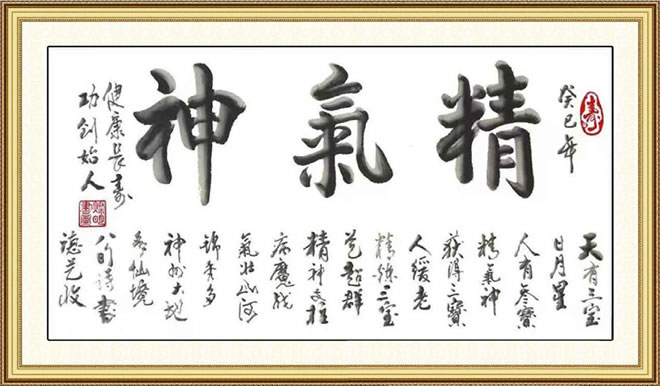 癸巳年
精氣神
天有三宝
日月星
人有参寳
精氣神
获得三寳
人缓老
精练三宝
艺超群
精神支柱
病魔战
氣壮山河
锦秀多
神州大地
仙境
八旬诗書
德艺收
健康長寿
功创始人